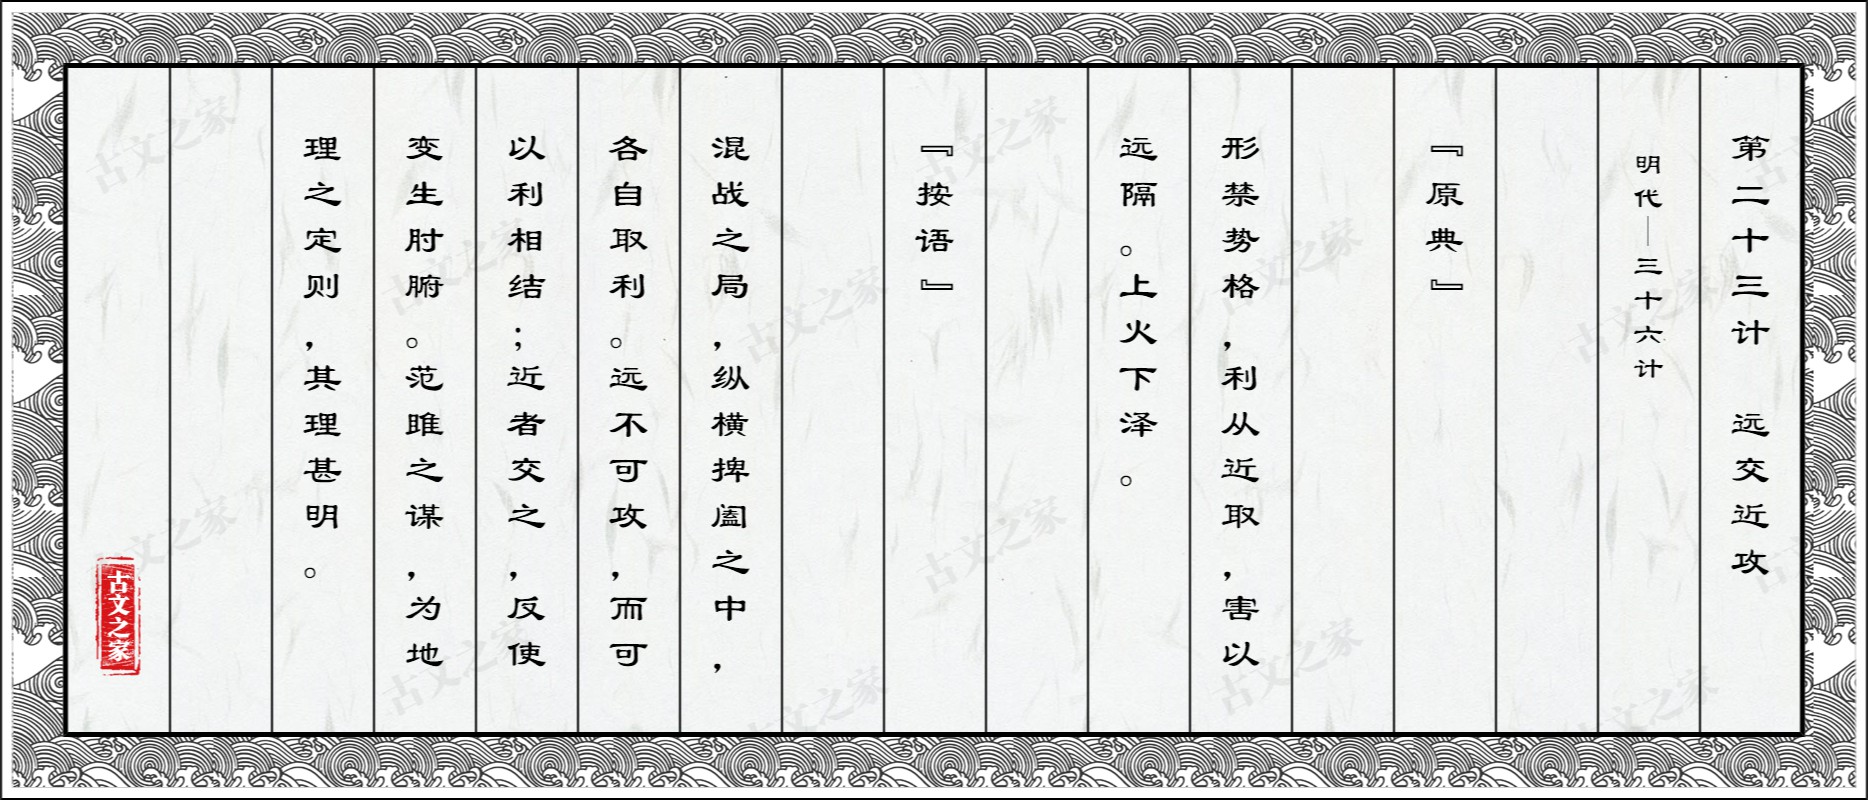 第二十三计 远交近攻
明代—三十六计
『原典』
形禁势格，利从近取，害以
远隔。上火下泽。
『按语』
混战之局，纵横捭阖之中，
各自取利。远不可攻，而可
以利相结；近者交之，反使
变生肘腑。范雎之谋，为地
理之定则，其理甚明。
古文之家